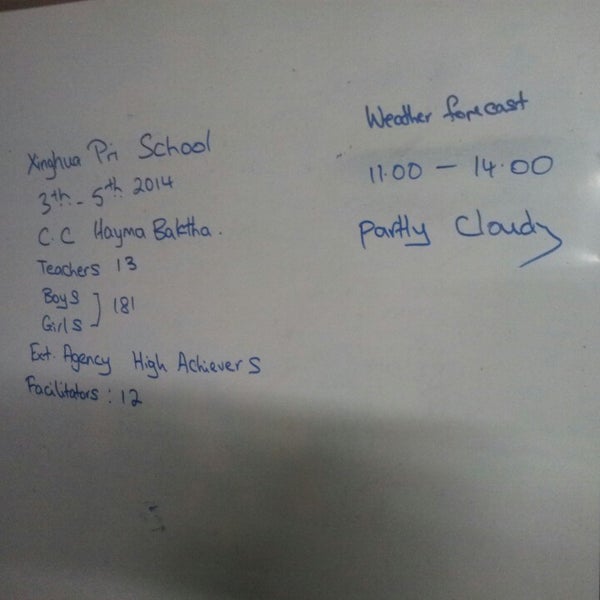 Xinghua Pri School
3th - 5th 2014
C.C Hayma Baktha.
Teachers 13
Boys
Girls ] 181
Ext. Agency High Achievers
Facilitators : 12
Weather forecast
11.00 - 14.00
Partly Cloudy